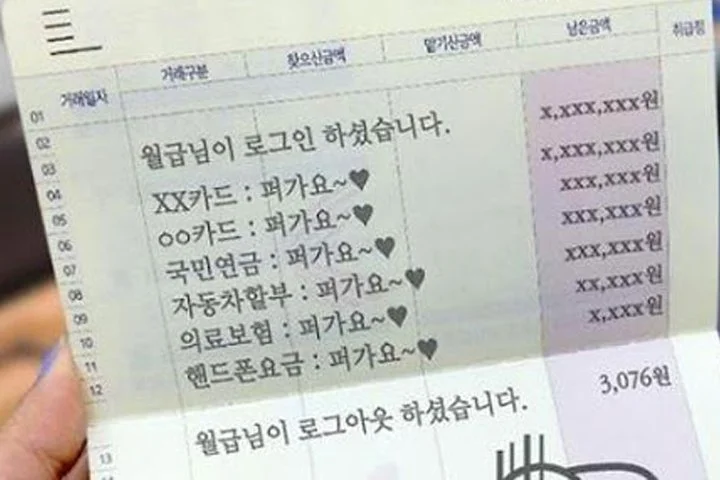 거래일자 거래구분 찾으신금액 맡기신금액 남은금액 취급점
01
02 월급님이 로그인 하셨습니다. x,xxx,xxx원
03
04 XX카드 : 퍼가요~♥ x,xxx,xxx원
05 ○○카드 : 퍼가요~♥ xxx,xxx원
06
07 국민연금 : 퍼가요~♥ xxx,xxx원
08 자동차할부 : 퍼가요~♥ xxx,xxx원
09
10 의료보험 : 퍼가요~♥ xx,xxx원
11 핸드폰요금 : 퍼가요~♥ x,xxx원
12
월급님이 로그아웃 하셨습니다. 3,076원
13